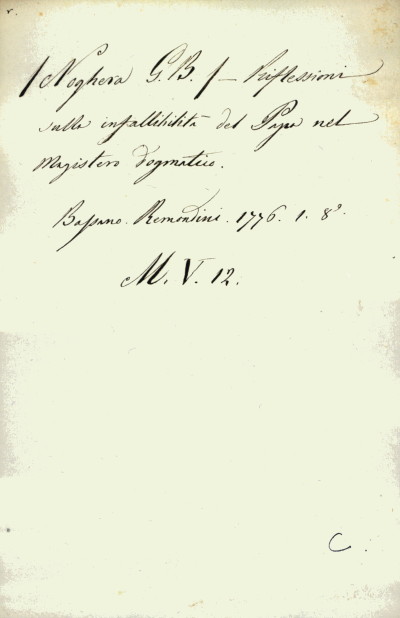 r.
/Noghera G.B./ — Riflessioni
sulla infallibilità del Papa nel
Magistero dogmatico.
Bassano. Remondini. 1776. 1. 8°.
M. V. 12.
C.